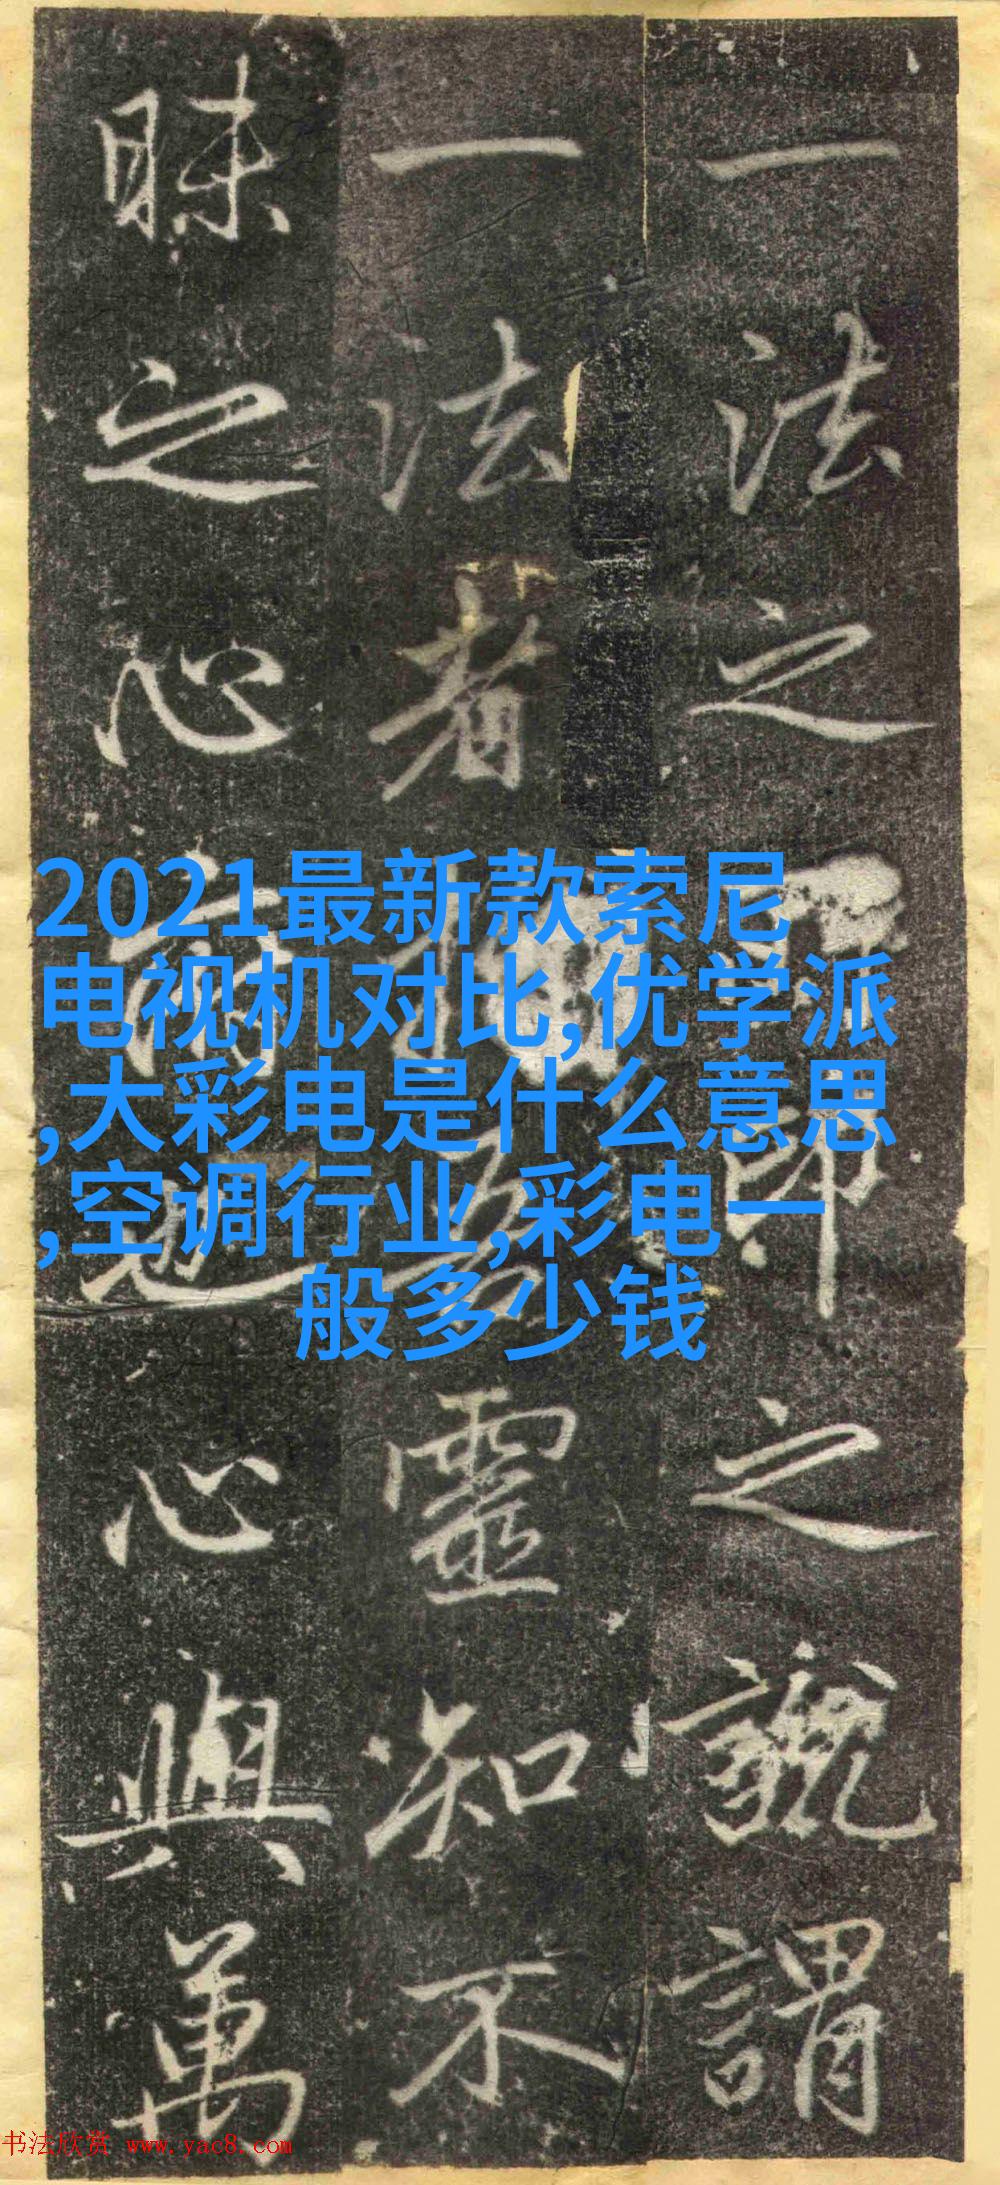 一法之印之號謂
一法者靈知不
昧之心也心與萬
2021最新款索尼
电视机对比,优学派
,大彩电是什么意思
,空调行业,彩电一
般多少钱
书法欣赏 www.yac8.com